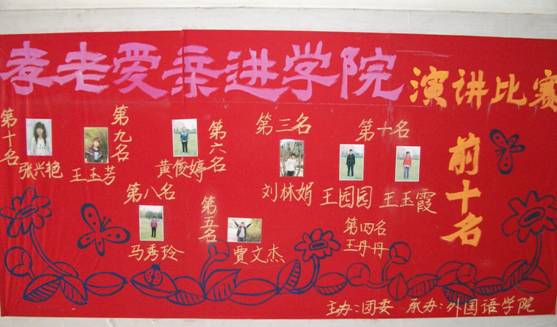 孝老爱亲进学院
演讲比赛
前十名
第十名
张兴艳
第九名
王玉芳
第六名
黄俊婷
第三名
刘林娟
第十名
王园园
王玉霞
第八名
马秀玲
第五名
贾文杰
第四名
王丹丹
主办:团委 承办:外国语学院